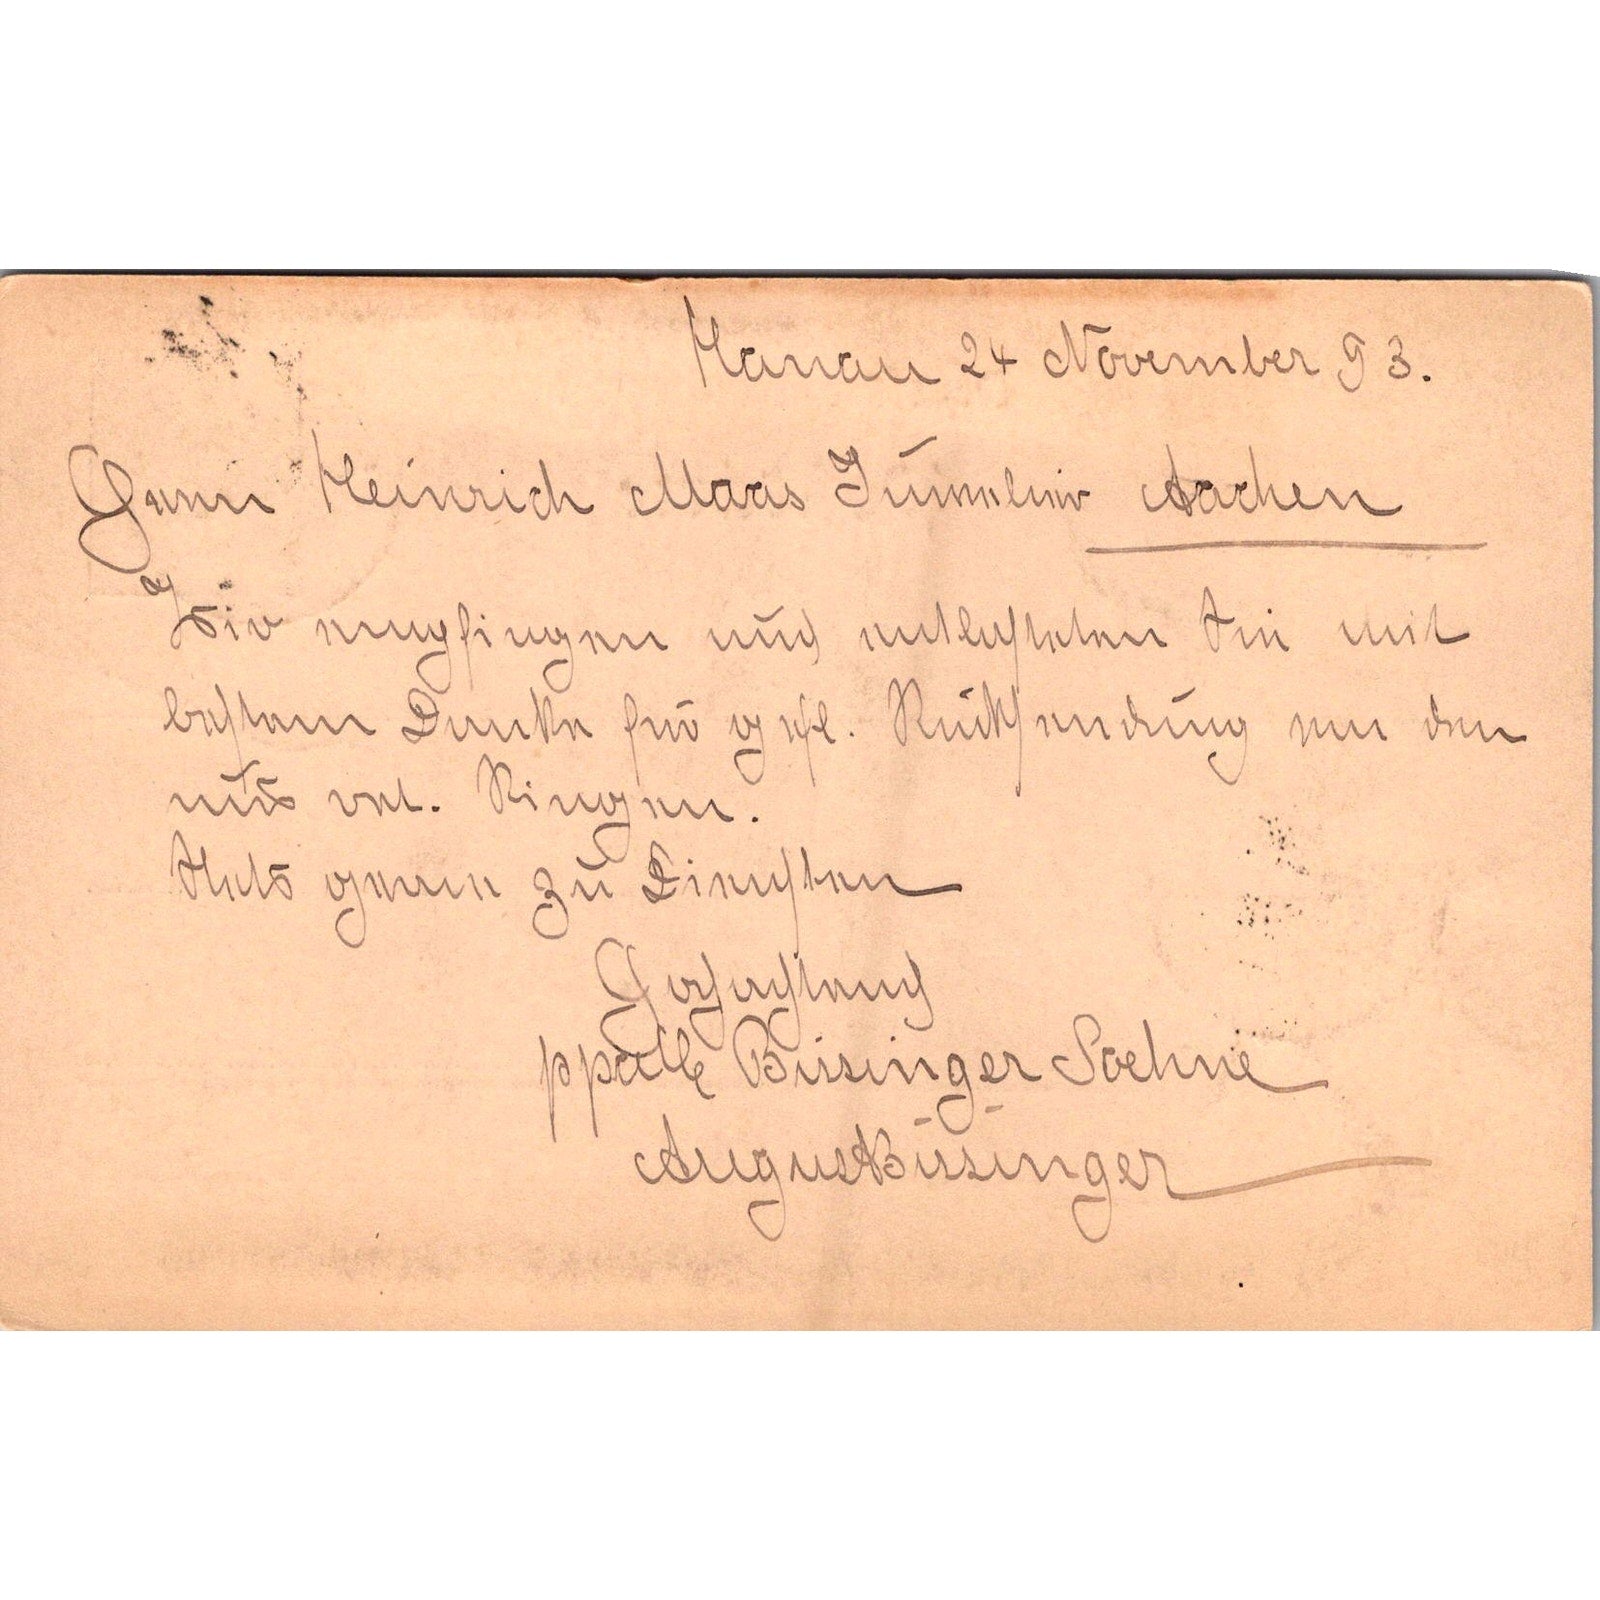 Hanau 24 November 93.
Herrn Heinrich Maas Juwelier Aachen
Wir empfingen und entlasteten Sie mit
bestem Danke für gefl. Rücksendung von den
uns ret. Ringen.
Stets gerne zu Diensten
Hochachtend
ppa Bissinger Soehne
August Bissinger